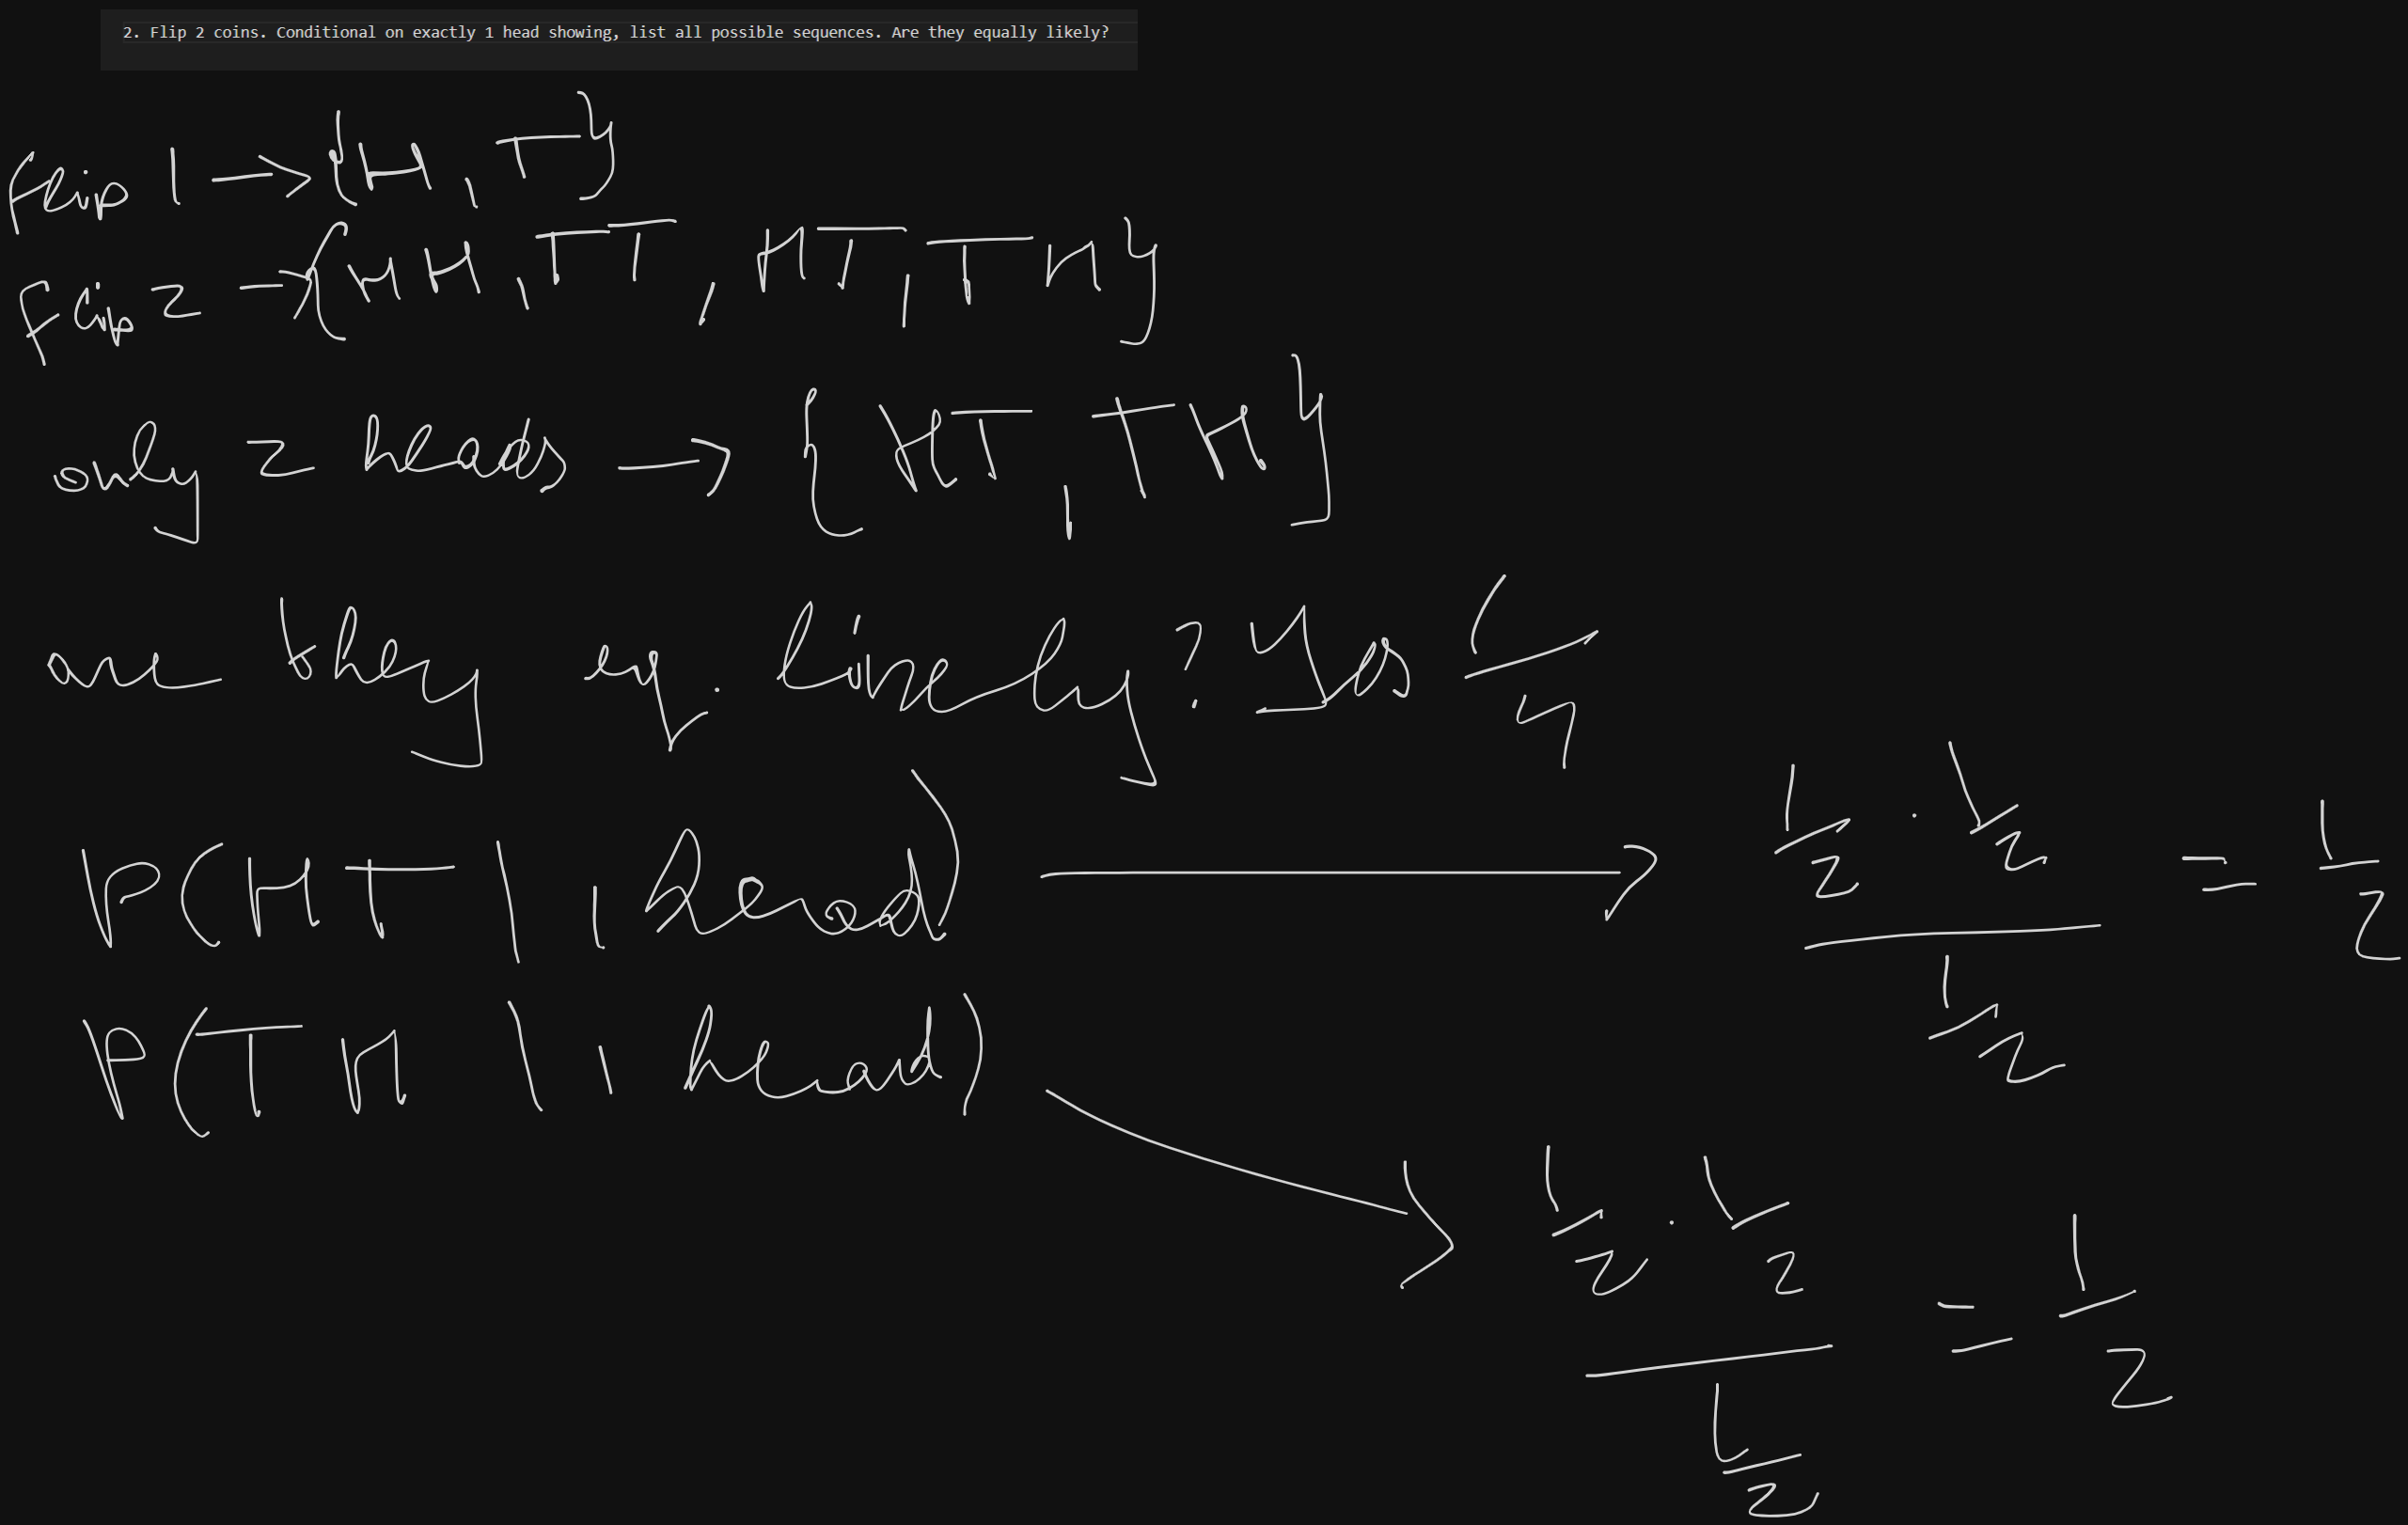 2. Flip 2 coins. Conditional on exactly 1 head showing, list all possible sequences. Are they equally likely?
Flip 1 → {H, T}
Flip 2 → {HH, TT, HT, TH}
only 2 heads → {HT, TH}
are they eq. likely? Yes 1/4
P(HT | 1 head) → (1/2 · 1/2) / (1/2) = 1/2
P(TH | 1 head) → (1/2 · 1/2) / (1/2) = 1/2